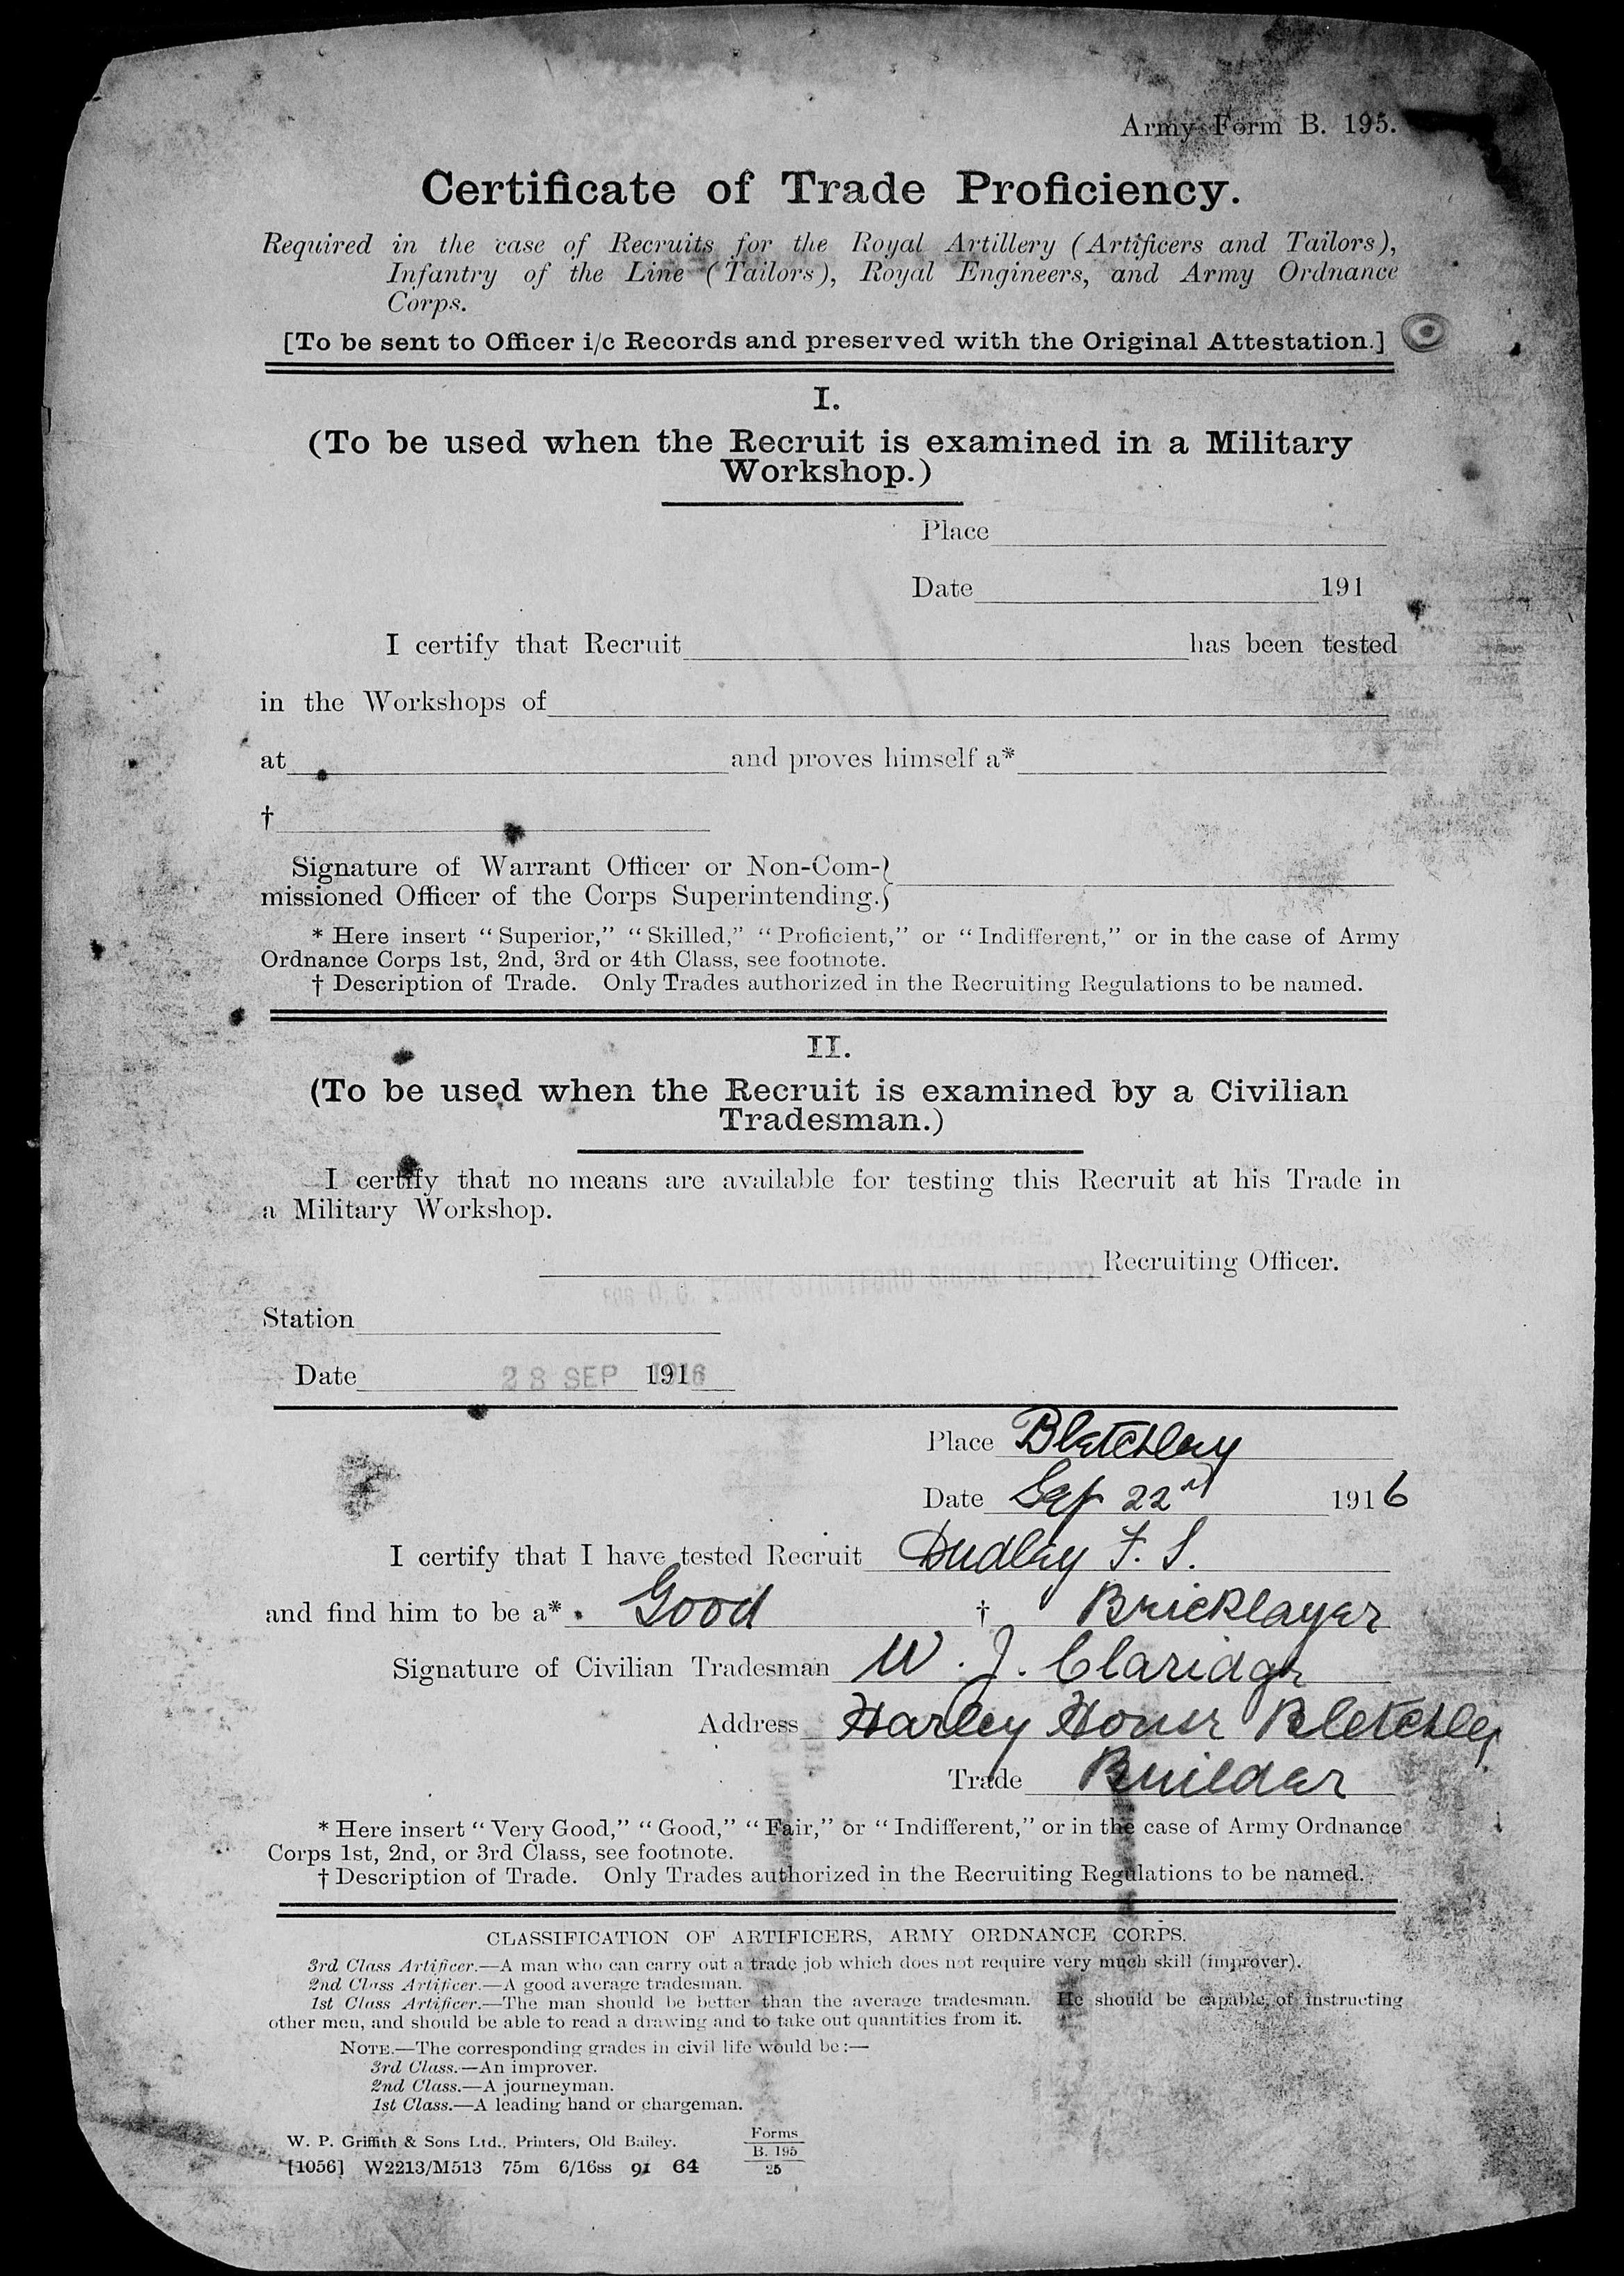 Army Form B. 195.
Certificate of Trade Proficiency.
Required in the case of Recruits for the Royal Artillery (Artificers and Tailors),
Infantry of the Line (Tailors), Royal Engineers, and Army Ordnance
Corps.
[To be sent to Officer i/c Records and preserved with the Original Attestation.]
I.
(To be used when the Recruit is examined in a Military
Workshop.)
Place
Date 191
I certify that Recruit has been tested
in the Workshops of
at and proves himself a*
†
Signature of Warrant Officer or Non-Com-
missioned Officer of the Corps Superintending.
* Here insert "Superior," "Skilled," "Proficient," or "Indifferent," or in the case of Army
Ordnance Corps 1st, 2nd, 3rd or 4th Class, see footnote.
† Description of Trade. Only Trades authorized in the Recruiting Regulations to be named.
II.
(To be used when the Recruit is examined by a Civilian
Tradesman.)
I certify that no means are available for testing this Recruit at his Trade in
a Military Workshop.
Recruiting Officer.
FOR O.C. FENNY STRATFORD SIGNAL DEPOT
Station
Date 28 SEP 1916
Place Bletchley
Date Sep 22nd 1916
I certify that I have tested Recruit Dudley F. S.
and find him to be a* Good † Bricklayer
Signature of Civilian Tradesman W. J. Claridge
Address Harley House Bletchley
Trade Builder
* Here insert "Very Good," "Good," "Fair," or "Indifferent," or in the case of Army Ordnance
Corps 1st, 2nd, or 3rd Class, see footnote.
† Description of Trade. Only Trades authorized in the Recruiting Regulations to be named.
CLASSIFICATION OF ARTIFICERS, ARMY ORDNANCE CORPS.
3rd Class Artificer.—A man who can carry out a trade job which does not require very much skill (improver).
2nd Class Artificer.—A good average tradesman.
1st Class Artificer.—The man should be better than the average tradesman. He should be capable of instructing
other men, and should be able to read a drawing and to take out quantities from it.
NOTE.—The corresponding grades in civil life would be:—
3rd Class.—An improver.
2nd Class.—A journeyman.
1st Class.—A leading hand or chargeman.
W. P. Griffith & Sons Ltd., Printers, Old Bailey. Forms
B. 195
[1056] W2213/M513 75m 6/16ss 91 64 25